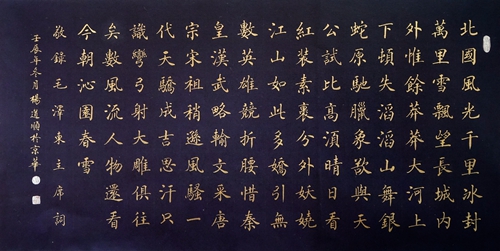 北國風光千里冰封
萬里雪飄望長城內
外惟餘莽莽大河上
下頓失滔滔山舞銀
蛇原馳臘象欲與天
公試比高須晴日看
紅裝素裹分外妖嬈
江山如此多嬌引無
數英雄競折腰惜秦
皇漢武略輸文采唐
宗宋祖稍遜風騷一
代天驕成吉思汗只
識彎弓射大雕俱往
矣數風流人物還看
今朝沁園春雪
敬錄毛澤東主席詞
壬辰年冬月楊道順於京華